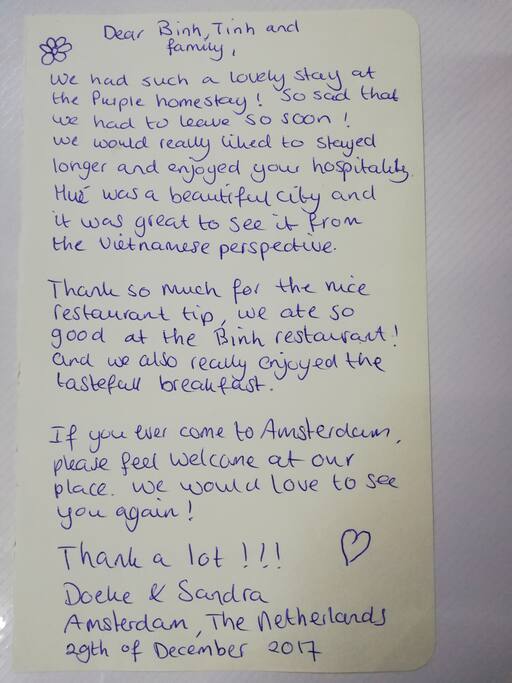 Dear Binh, Tinh and
family,
we had such a lovely stay at
the Purple homestay! So sad that
we had to leave so soon!
we would really liked to stayed
longer and enjoyed your hospitality.
Hué was a beautiful city and
it was great to see it from
the Vietnamese perspective.
Thank so much for the nice
restaurant tip, we ate so
good at the Binh restaurant!
and we also really enjoyed the
tastefull breakfast.
If you ever come to Amsterdam,
please feel welcome at our
place. we would love to see
you again!
Thank a lot !!!
Doeke & Sandra
Amsterdam, The Netherlands
29th of December 2017